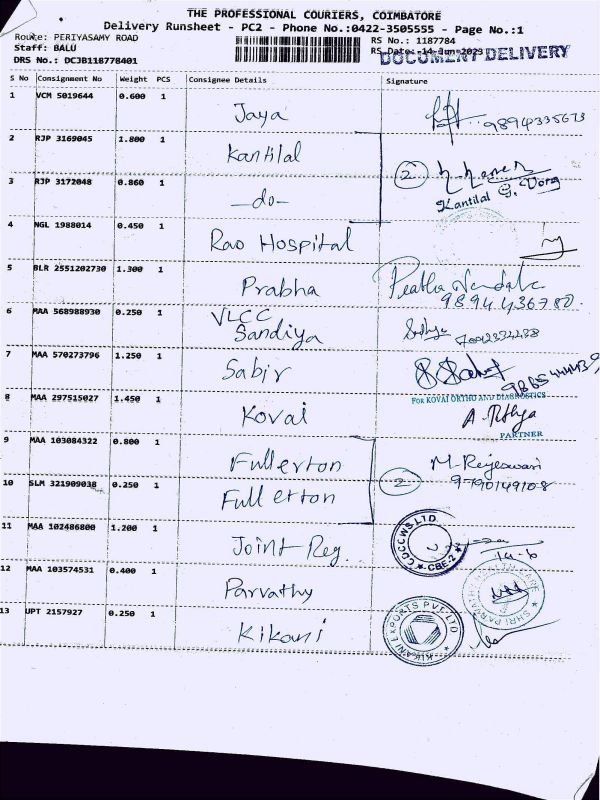 THE PROFESSIONAL COURIERS, COIMBATORE
Delivery Runsheet - PC2 - Phone No.:0422-3505555 - Page No.:1
Route: PERIYASAMY ROAD
RS No.: 1187784
Staff: BALU
RS Date: 14-Jun-2023
DOCUMENT DELIVERY
DRS No.: DCJB118778401
S No Consignment No Weight PCS Consignee Details Signature
1 VCM 5019644 0.600 1 Jaya
2 RJP 3169045 1.800 1 Kantilal
3 RJP 3172048 0.860 1 -do- 2 Kantilal G. Vora
4 NGL 1988014 0.450 1 Rao Hospital
5 BLR 2551202730 1.300 1 Prabha
9894436780
6 MAA 568988930 0.250 1 VLCC
Sandiya
7 MAA 570273796 1.250 1 Sabir
8 MAA 297515027 1.450 1 Kovai FOR KOVAI ORTHO AND DIAGNOSTICS
PARTNER
9 MAA 103084322 0.800 1 Fullerton M. Rejeswari
10 SLM 321909038 0.250 1 Fullerton 2 9790149108
11 MAA 102486800 1.200 1 Joint Reg. CDCCWS LTD. CBE-2 14-6
12 MAA 103574531 0.400 1 Parvathy
13 UPT 2157927 0.250 1 Kikani KIKANI EXPORTS PVT. LTD